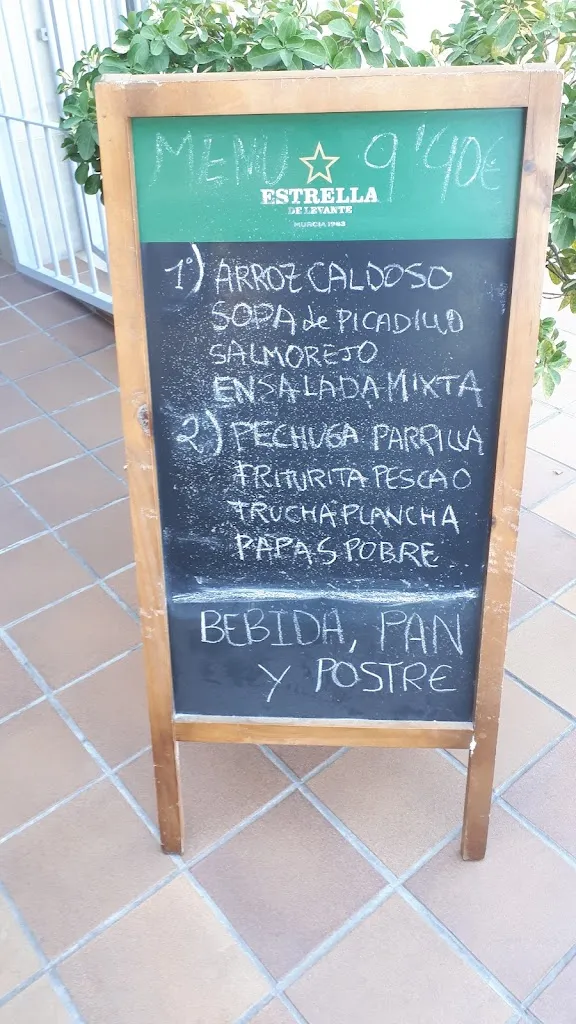 MENU 9'40€
ESTRELLA
DE LEVANTE
MURCIA 1963
1º) ARROZ CALDOSO
SOPA de PICADILLO
SALMOREJO
ENSALADA MIXTA
2) PECHUGA PARRILLA
FRITURITA PESCAO
TRUCHA PLANCHA
PAPAS POBRE
BEBIDA, PAN
Y POSTRE